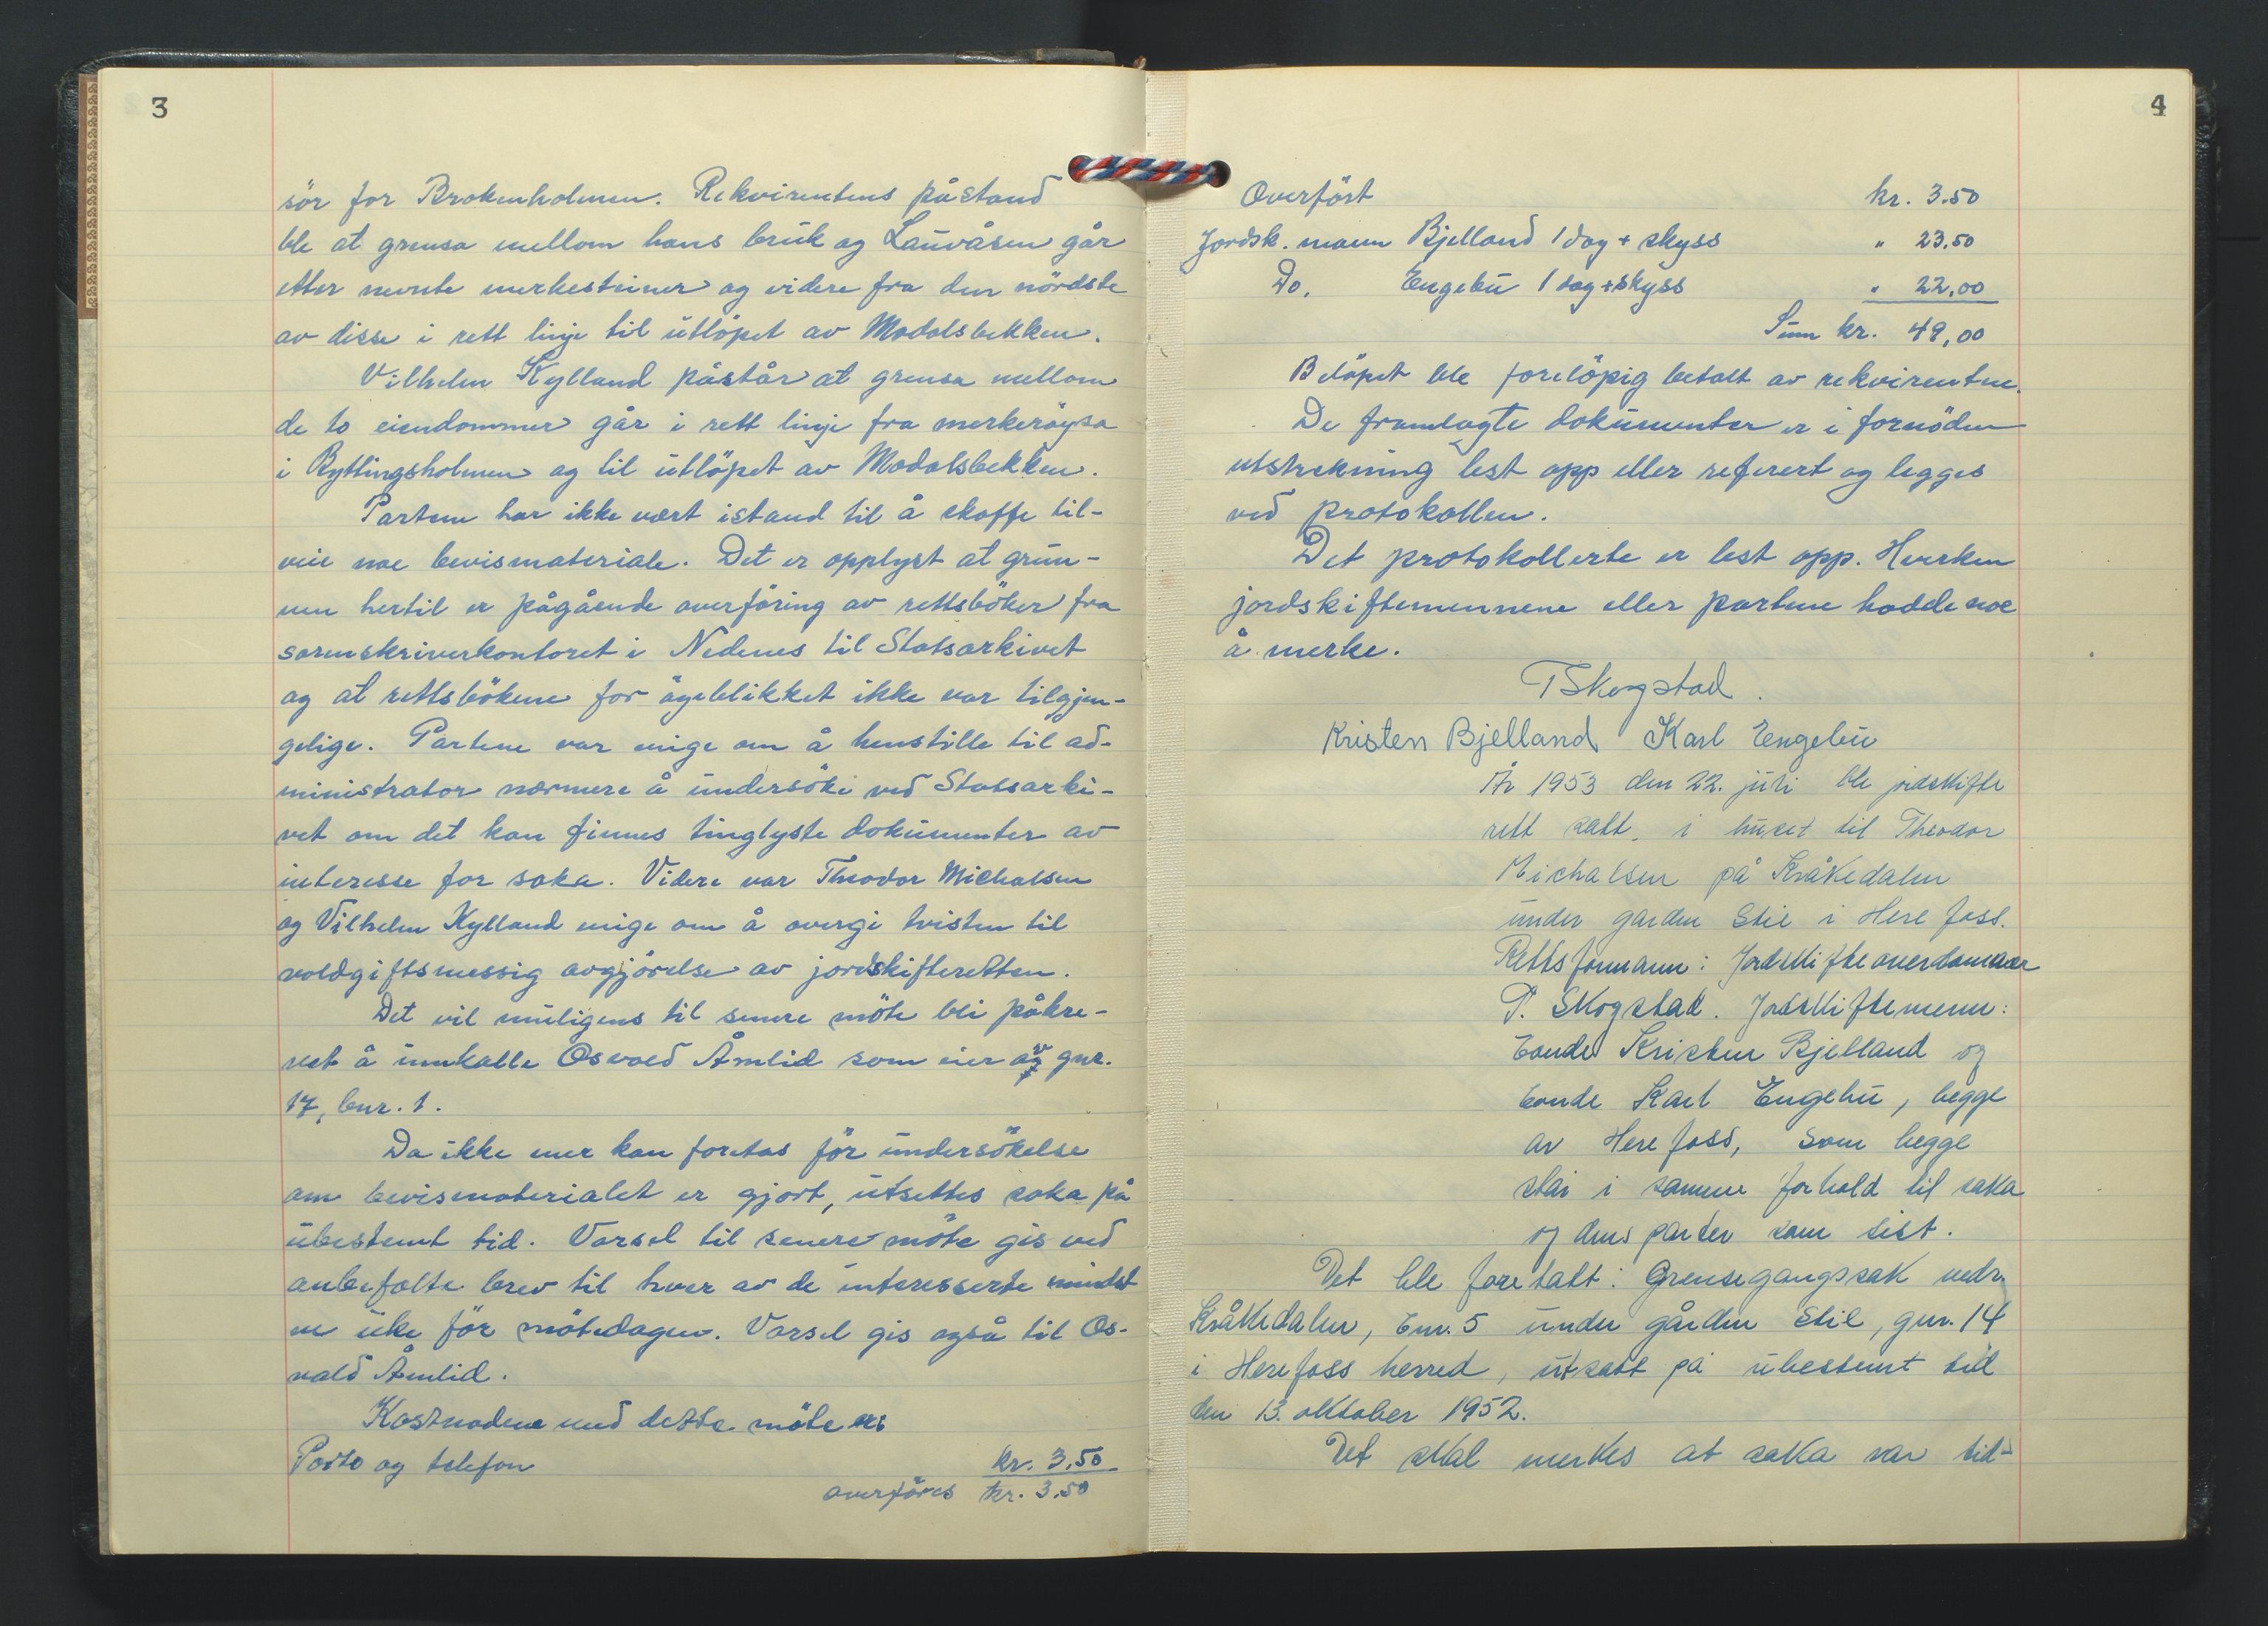 3
sör for Brokenholmen. Rekvirentens påstand
ble at grensa mellom hans bruk og Lauvåsen går
etter nevnte merkesteiner og videre fra den nördste
av disse i rett linje til utlöpet av Modalsbekken.
Vilhelm Kylland påstår at grensa mellom
de to eiendommer går i rett linje fra merkeröysa
i Ryttingsholmen og til utlöpet av Modalsbekken.
Partene har ikke vært istand til å skaffe til-
veie noe bevismateriale. Det er opplyst at grun-
nen hertil er pågående overföring av rettsböker fra
sorenskriverkontoret i Nedenes til Statsarkivet
og at rettsbökene for öyeblikket ikke var tilgjen-
gelige. Partene var enige om å henstille til ad-
ministrator nærmere å undersöke ved Statsarki-
vet om det kan finnes tinglyste dokumenter av
interesse for saka. Videre var Theodor Michalsen
og Vilhelm Kylland enige om å overgi tvisten til
voldgiftsmessig avgjörelse av jordskifteretten.
Det vil muligens til senere möte bli påkre-
vet å innkalle Osvald Åmlid som eier av gnr.
17, bnr. 1.
Da ikke mer kan foretas för undersökelse
om bevismaterialet er gjort, utsettes saka på
ubestemt tid. Varsel til senere möte gis ved
anbefalte brev til hver av de interesserte mindst
en uke för mötedagen. Varsel gis også til Os-
vald Åmlid.
Kostnadene med dette möte er:
Porto og telefon kr. 3.50
overföres kr. 3.50
4
Overfört kr. 3.50
Jordsk. mann Bjelland 1 dag + skyss " 23,50
Do. Engebu 1 dag + skyss " 22,00
Sum kr. 49,00
Belöpet ble forelöpig betalt av rekvirenten.
De framlagte dokumenter er i fornöden
utstrekning lest opp eller referert og legges
ved protokollen.
Det protokollerte er lest opp. Hverken
jordskiftemennene eller partene hadde noe
å merke.
T Skogstad.
Kristen Bjelland Karl Engebu
År 1953 den 22. juli ble jordskifte
rett satt i huset til Theodor
Michalsen på Kråkedalen
under garden Stie i Herefoss.
Rettsformann: Jordskifteoverdommer
T. Skogstad. Jordskiftemenn:
bonde Kristen Bjelland og
bonde Karl Engebu, begge
av Herefoss, som begge
står i samme forhold til saka
og dens parter som sist.
Det ble foretatt: Grensegangssak vedr.
Kråkedalen, bnr. 5 under gården Stie, gnr. 14
i Herefoss herred, utsatt på ubestemt tid
den 13. oktober 1952.
Det skal merkes at saka var tid-